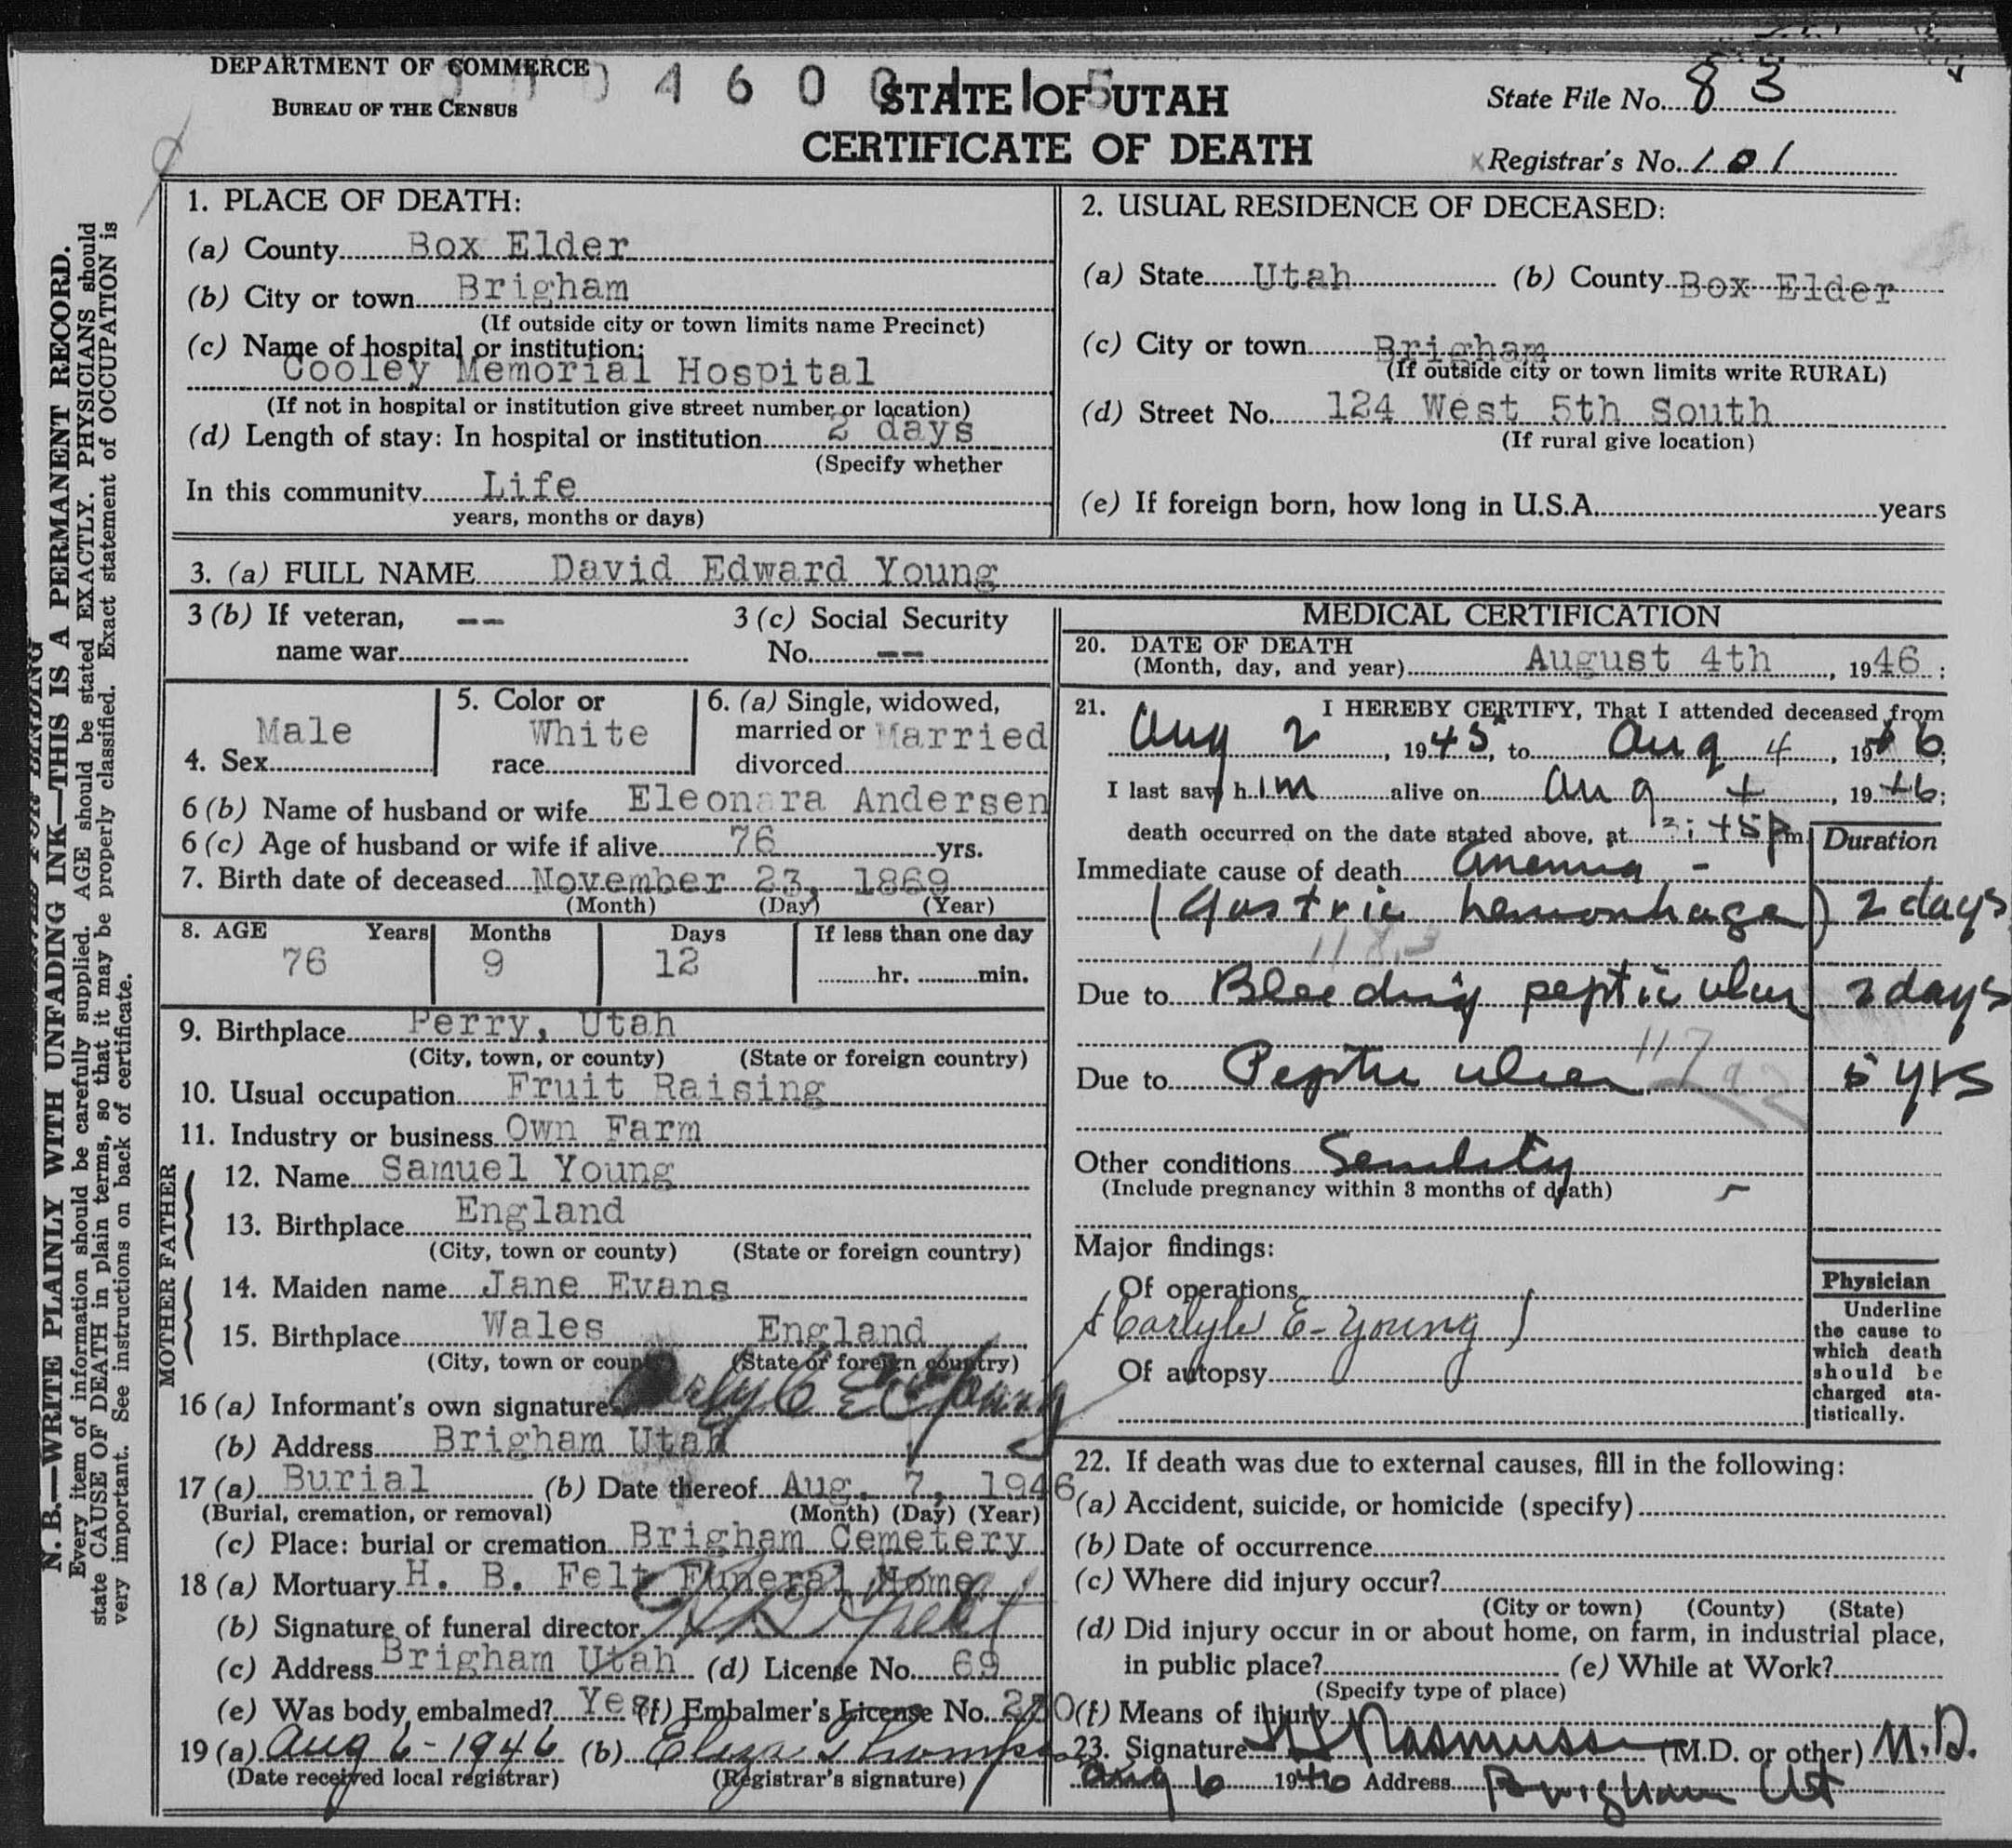 DEPARTMENT OF COMMERCE
BUREAU OF THE CENSUS
4 6 0 0
STATE OF UTAH
CERTIFICATE OF DEATH
State File No. 83
Registrar's No. 101
N. B.—WRITE PLAINLY WITH UNFADING INK—THIS IS A PERMANENT RECORD.
Every item of information should be carefully supplied. AGE should be stated EXACTLY. PHYSICIANS should
state CAUSE OF DEATH in plain terms, so that it may be properly classified. Exact statement of OCCUPATION is
very important. See instructions on back of certificate.
1. PLACE OF DEATH:
(a) County Box Elder
(b) City or town Brigham
(If outside city or town limits name Precinct)
(c) Name of hospital or institution:
Cooley Memorial Hospital
(If not in hospital or institution give street number or location)
(d) Length of stay: In hospital or institution 2 days
(Specify whether
In this community Life
years, months or days)
2. USUAL RESIDENCE OF DECEASED:
(a) State Utah (b) County Box Elder
(c) City or town Brigham
(If outside city or town limits write RURAL)
(d) Street No. 124 West 5th South
(If rural give location)
(e) If foreign born, how long in U.S.A. years
3. (a) FULL NAME David Edward Young
3 (b) If veteran, -- 3 (c) Social Security
name war No. --
Male 5. Color or 6. (a) Single, widowed,
White married or Married
4. Sex race divorced
6 (b) Name of husband or wife Eleonara Andersen
6 (c) Age of husband or wife if alive 76 yrs.
7. Birth date of deceased November 23, 1869
(Month) (Day) (Year)
8. AGE Years Months Days If less than one day
76 9 12 hr. min.
9. Birthplace Perry, Utah
(City, town, or county) (State or foreign country)
10. Usual occupation Fruit Raising
11. Industry or business Own Farm
FATHER
12. Name Samuel Young
13. Birthplace England
(City, town or county) (State or foreign country)
MOTHER
14. Maiden name Jane Evans
15. Birthplace Wales England
(City, town or county) (State or foreign country)
16 (a) Informant's own signature Carlyle E Young
(b) Address Brigham Utah
17 (a) Burial (b) Date thereof Aug. 7, 1946
(Burial, cremation, or removal) (Month) (Day) (Year)
(c) Place: burial or cremation Brigham Cemetery
18 (a) Mortuary H. B. Felt Funeral Home
(b) Signature of funeral director H B Felt
(c) Address Brigham Utah (d) License No. 69
(e) Was body embalmed? Yes (f) Embalmer's License No.
19 (a) Aug 6-1946 (b) Eliza
(Date received local registrar) (Registrar's signature)
MEDICAL CERTIFICATION
20. DATE OF DEATH
(Month, day, and year) August 4th, 1946;
21. I HEREBY CERTIFY, That I attended deceased from
Aug 2, 1945, to Aug 4, 1946;
I last saw him alive on Aug 4, 1946;
death occurred on the date stated above, at :45 p m. Duration
Immediate cause of death Anemia -
(Gastric hemorrhage) 2 days
118.3
Due to Bleeding peptic ulcer 2 days
Due to Peptic ulcer 117 5 yrs
Other conditions Senility
(Include pregnancy within 3 months of death)
Major findings:
Of operations
(Carlyle E- Young)
Of autopsy
Physician
Underline
the cause to
which death
should be
charged sta-
tistically.
22. If death was due to external causes, fill in the following:
(a) Accident, suicide, or homicide (specify)
(b) Date of occurrence
(c) Where did injury occur?
(City or town) (County) (State)
(d) Did injury occur in or about home, on farm, in industrial place,
in public place? (e) While at Work?
(Specify type of place)
(f) Means of injury
23. Signature Rasmussen (M.D. or other) M.D.
Aug 6 1946 Address Brigham Ut